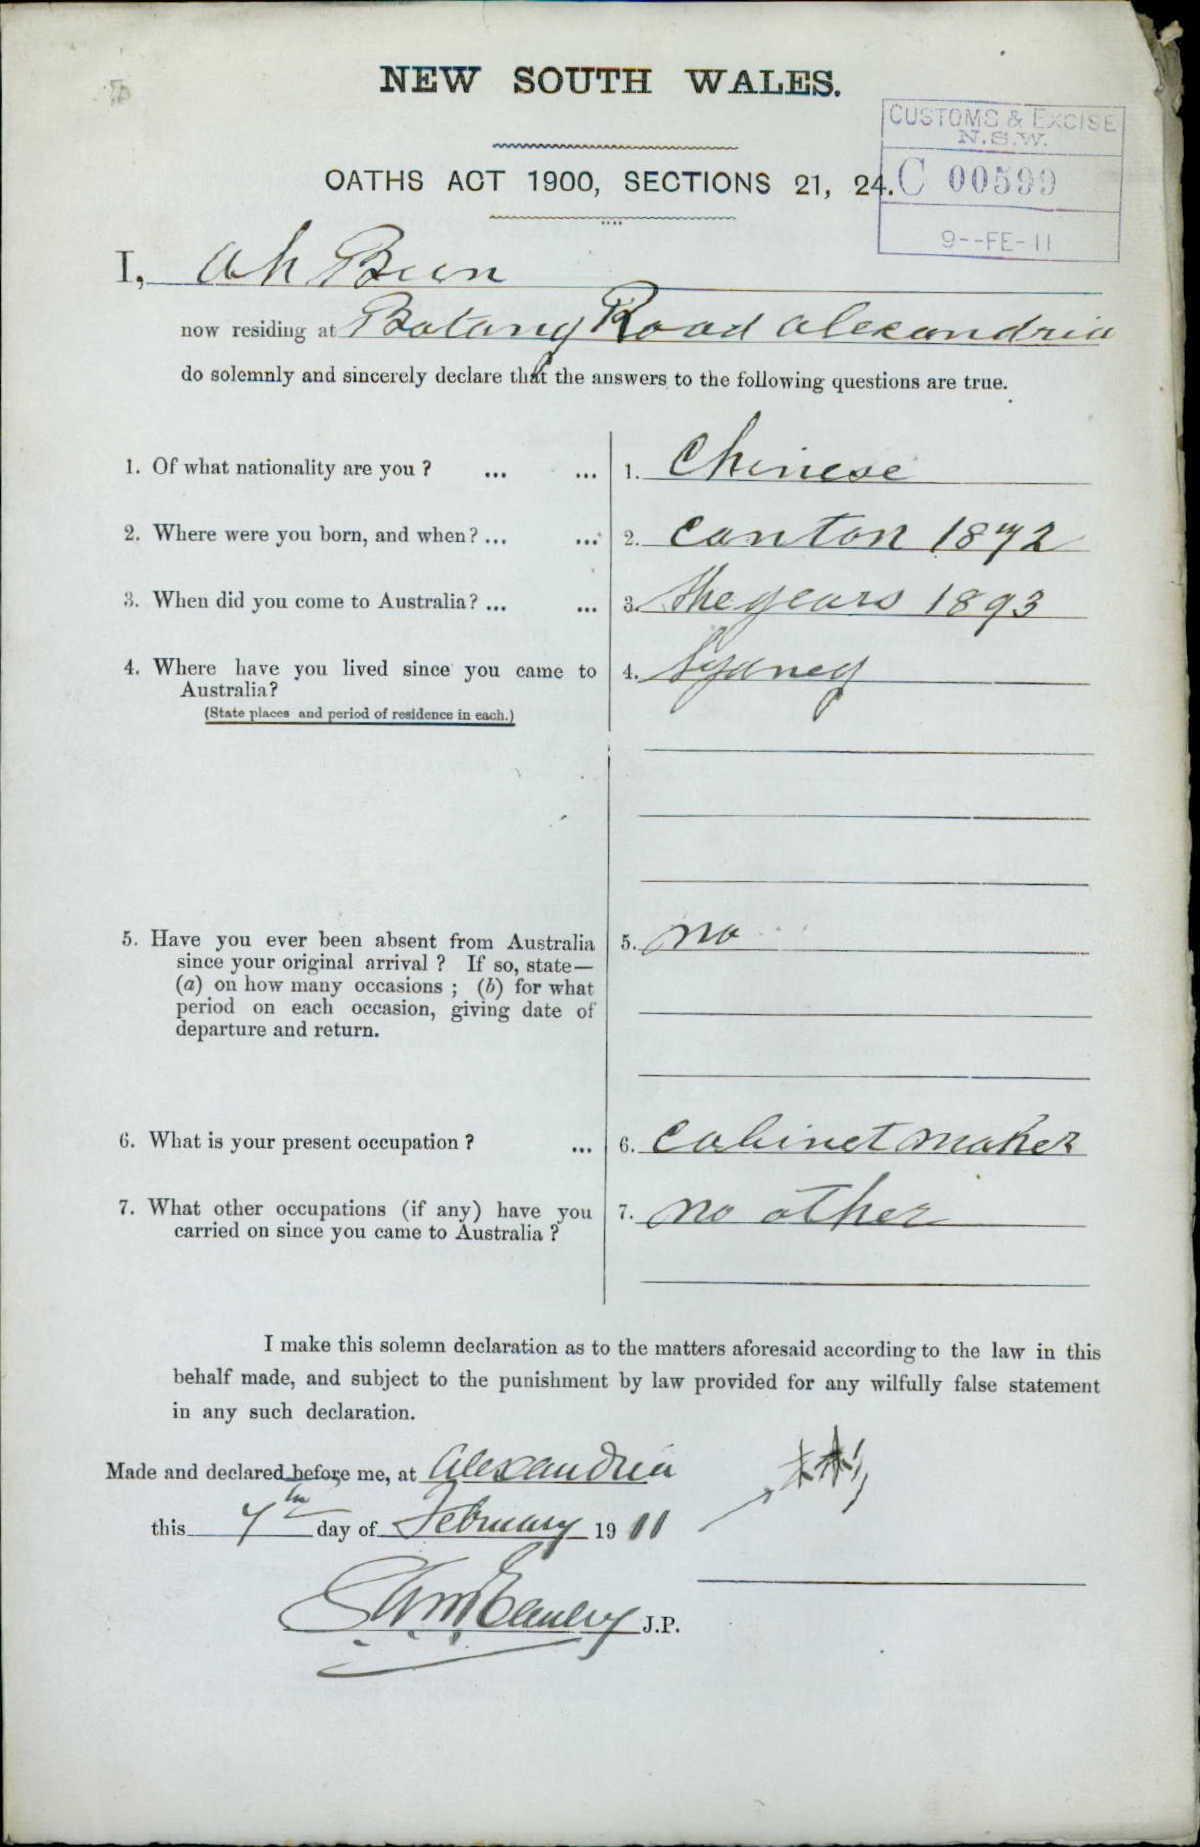 NEW SOUTH WALES.
CUSTOMS & EXCISE
N.S.W.
C 00599
9--FE-11
OATHS ACT 1900, SECTIONS 21, 24.
I, Ah Bun
now residing at Botany Road Alexandria
do solemnly and sincerely declare that the answers to the following questions are true.
1. Of what nationality are you ? ... ... 1. Chinese
2. Where were you born, and when? ... ... 2. Canton 1872
3. When did you come to Australia? ... ... 3. the years 1893
4. Where have you lived since you came to 4. Sydney
Australia?
(State places and period of residence in each.)
5. Have you ever been absent from Australia 5. no
since your original arrival ? If so, state—
(a) on how many occasions ; (b) for what
period on each occasion, giving date of
departure and return.
6. What is your present occupation ? ... 6. Cabinet maker
7. What other occupations (if any) have you 7. no other
carried on since you came to Australia ?
I make this solemn declaration as to the matters aforesaid according to the law in this
behalf made, and subject to the punishment by law provided for any wilfully false statement
in any such declaration.
Made and declared before me, at Alexandria
this 7th day of February 1911
J.P.